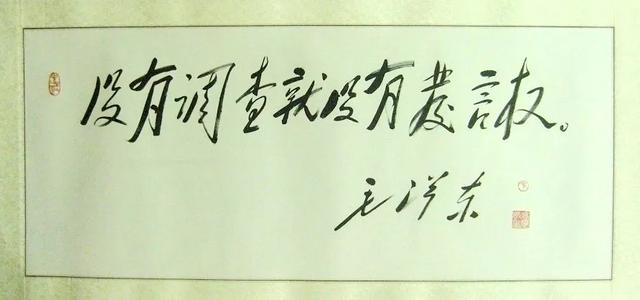 没有调查就没有發言权。
毛泽东